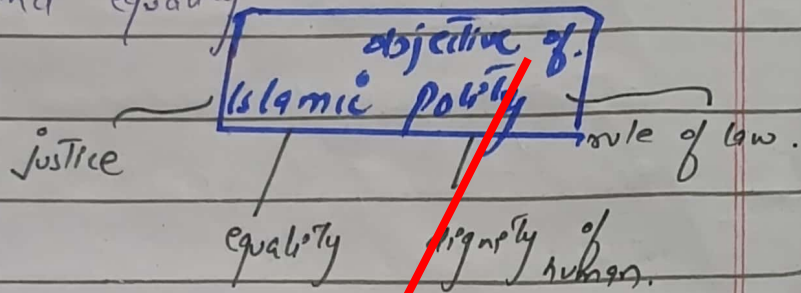 objective of.
Islamic Polity
justice
rule of law.
equality
dignity of
human.